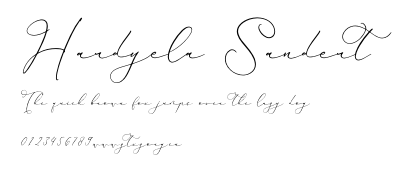 Hardyela Sandent
The quick brown fox jumps over the lazy dog
0123456789